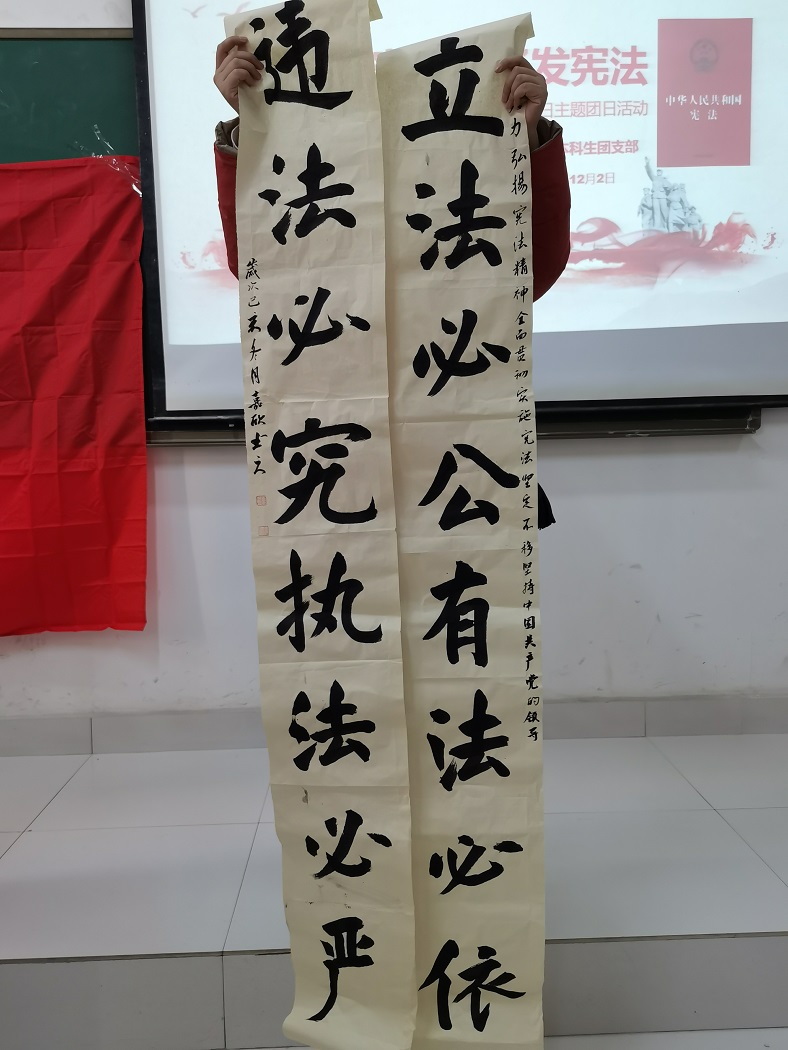 发宪法
日主题团日活动
本科生团支部
12月2日
中华人民共和国
宪法
立法必公有法必依
力弘揚宪法精神全面贯彻实施宪法坚定不移坚持中国共产党的领导
违法必究执法必严
歲次己未冬月嘉欣书